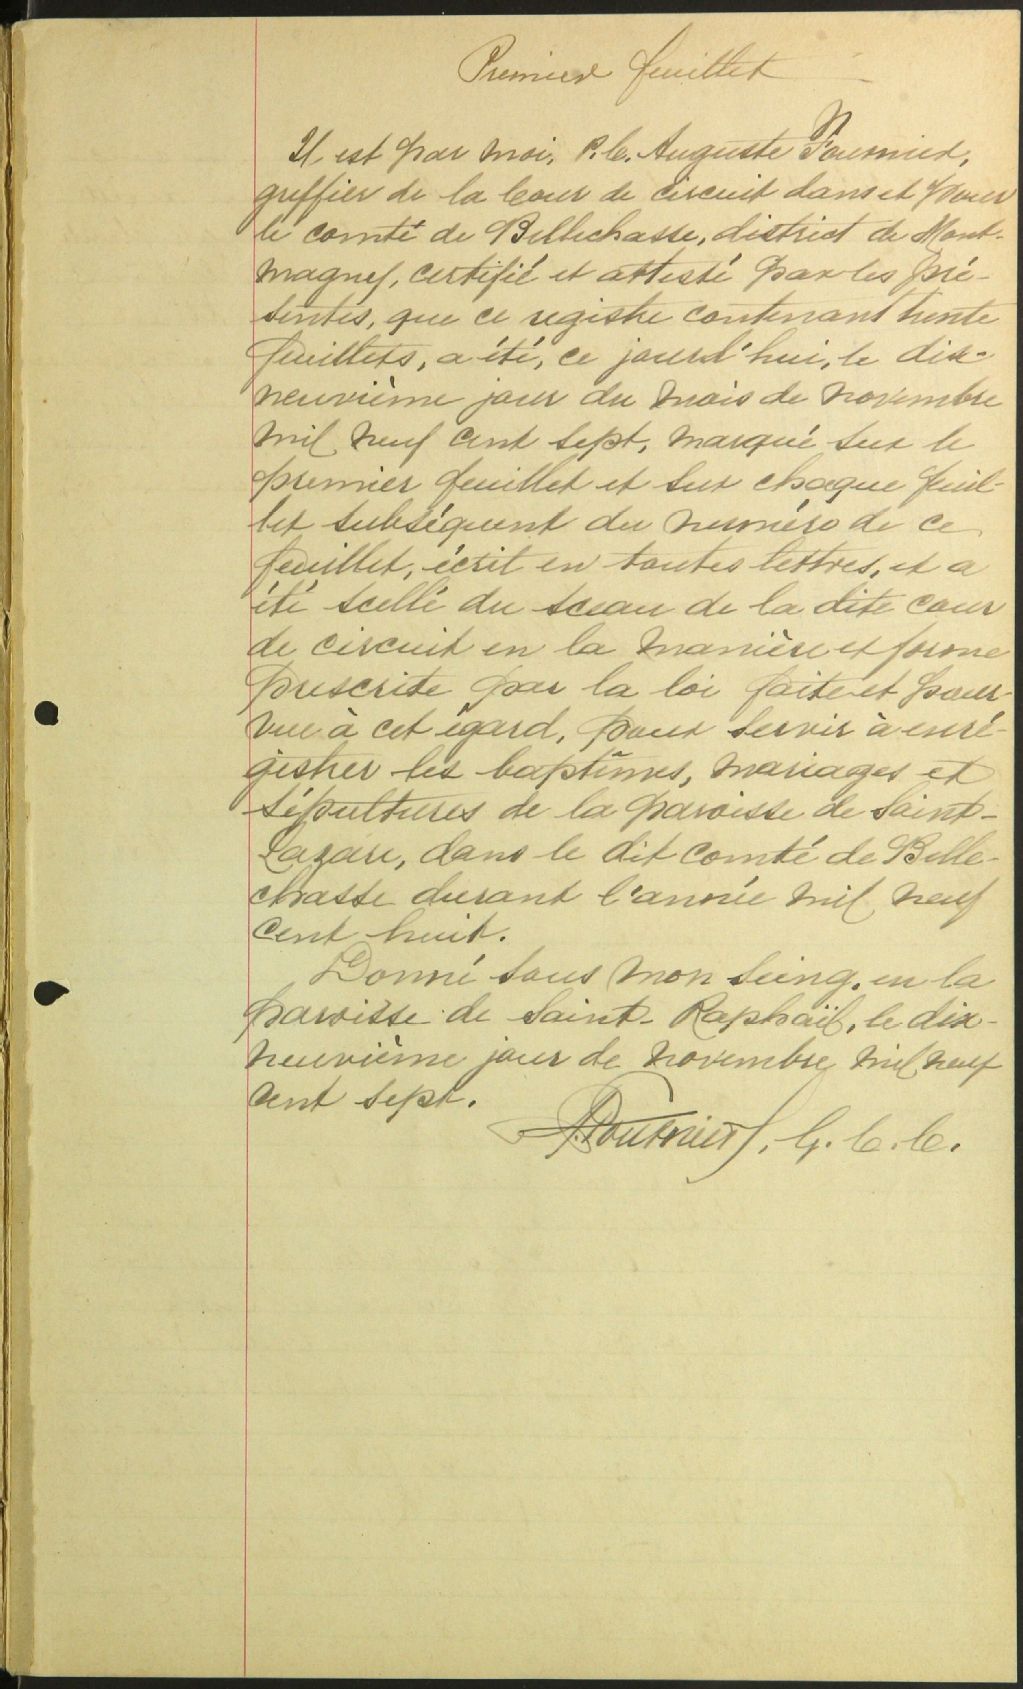 Premier feuillet
Il est par moi, P. C. Auguste Fournier,
greffier de la Cour de circuit dans et pour
le comté de Bellechasse, district de Mont-
magny, certifié et attesté par les pré-
sentes, que ce registre contenant trente
feuillets, a été, ce jourd'hui, le dix-
neuvième jour du mois de novembre
mil neuf cent sept, marqué sur le
premier feuillet et sur chaque feuil-
let subséquent du numéro de ce
feuillet, écrit en toutes lettres, et a
été scellé du sceau de la dite cour
de circuit en la manière et forme
prescrite par la loi faite et pour-
vue à cet égard, pour servir à enré-
gistrer les baptêmes, mariages et
sépultures de la paroisse de Saint-
Lazare, dans le dit comté de Belle-
chasse durant l'année mil neuf
cent huit.
Donné sous mon seing, en la
paroisse de Saint-Raphaël, le dix-
neuvième jour de novembre mil neuf
cent sept.
A. Fournier, G. C. C.